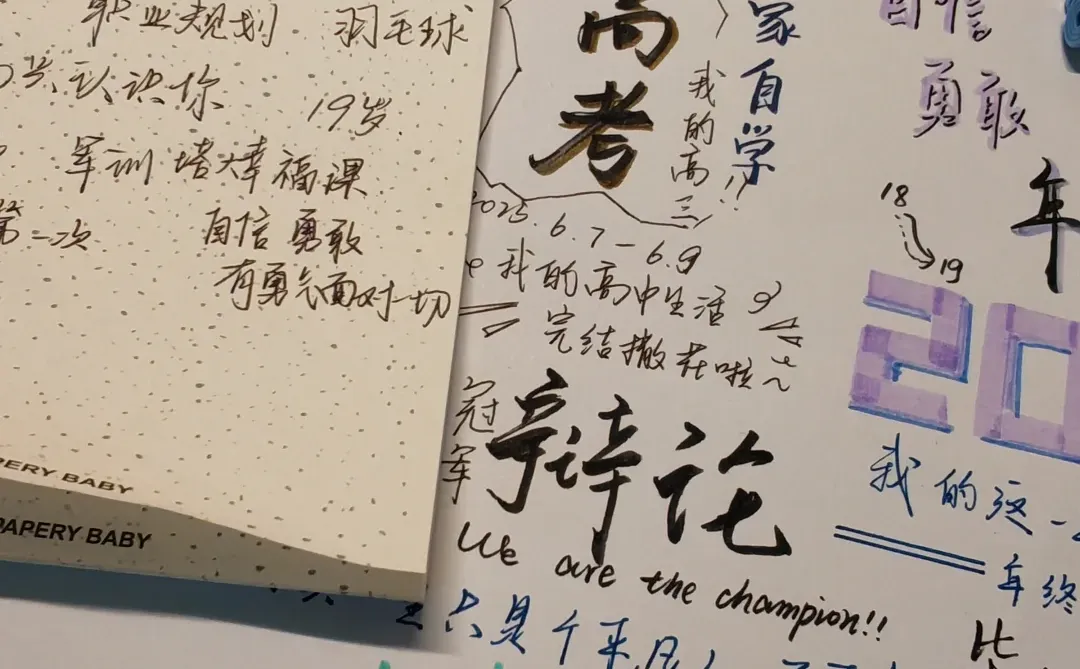 职业规划 羽毛球
认识你 19岁
军训 培大幸福课
第一次 自信 勇敢
有勇气面对一切
PAPERY BABY
PAPERY BABY
高考
我的高三!!
家自学
2025.6.7-6.9
我的高中生活
完结撒花啦
冠军
辩论
We are the champion!!
只是个平凡
自信
勇敢
18
19
年
20
我的这一
年终
比